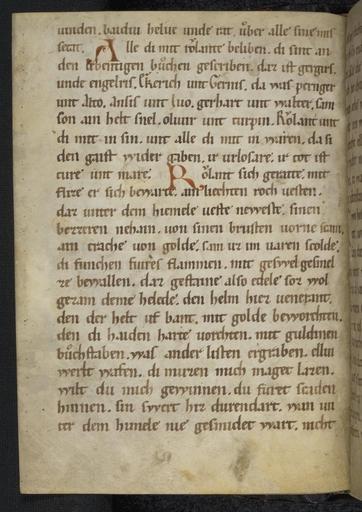 uinden. baidiu helue unde rat. uber alle sine mis
setat. Alle di mit rolante beliben. di sint an
den lebentigen buͦchen gescriben. daz ist gergirs.
unde engelris. Skerich unt Gernis. da was peringer
unt Atto. ansis unt Iuo. gerhart unt walter. sam
son ain helt snel. oluir unt turpin. Rolant unt
di mit in sin. unt alle di mit in waren. da si
den gaist wider gaben. ir urlosare. ir trost ist
iure unt mare. Rolant sich geraite. mit
flize er sich bewarte. ain liechten roch uesten.
daz unter dem himele ueste neweste. sinen
bezzeren nehain. uon sinen brusten uorne scain.
ain trache uon golde. sam uz im uaren scolde.
di funchen fiures flammen. mit gesmel gesmel
ze bewallen. daz gestaine also edele so iz wol
gezam deme helede. den helm hiez uenerant.
den der helt uf bant. mit golde beworchten.
den di haiden harte uorchten. mit guldinen
buͦchstaben. was ander listen ergraben. elliu
werlt wafen. di muzen mich maget lazen.
wilt du mich gewinnen. du fuͦrest scaden
hinnen. sin swert hiz durendart. wan un
ter dem himele nie gesmidet wart. nicht